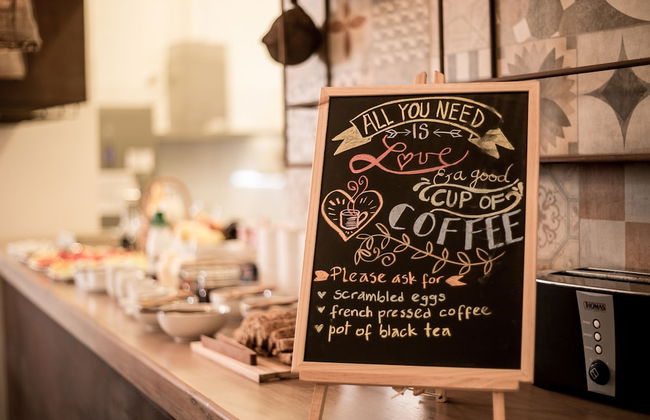 ALL YOU NEED
IS
Love
& a good
CUP OF
COFFEE
Please ask for
scrambled eggs
french pressed coffee
pot of black tea
THOMAS